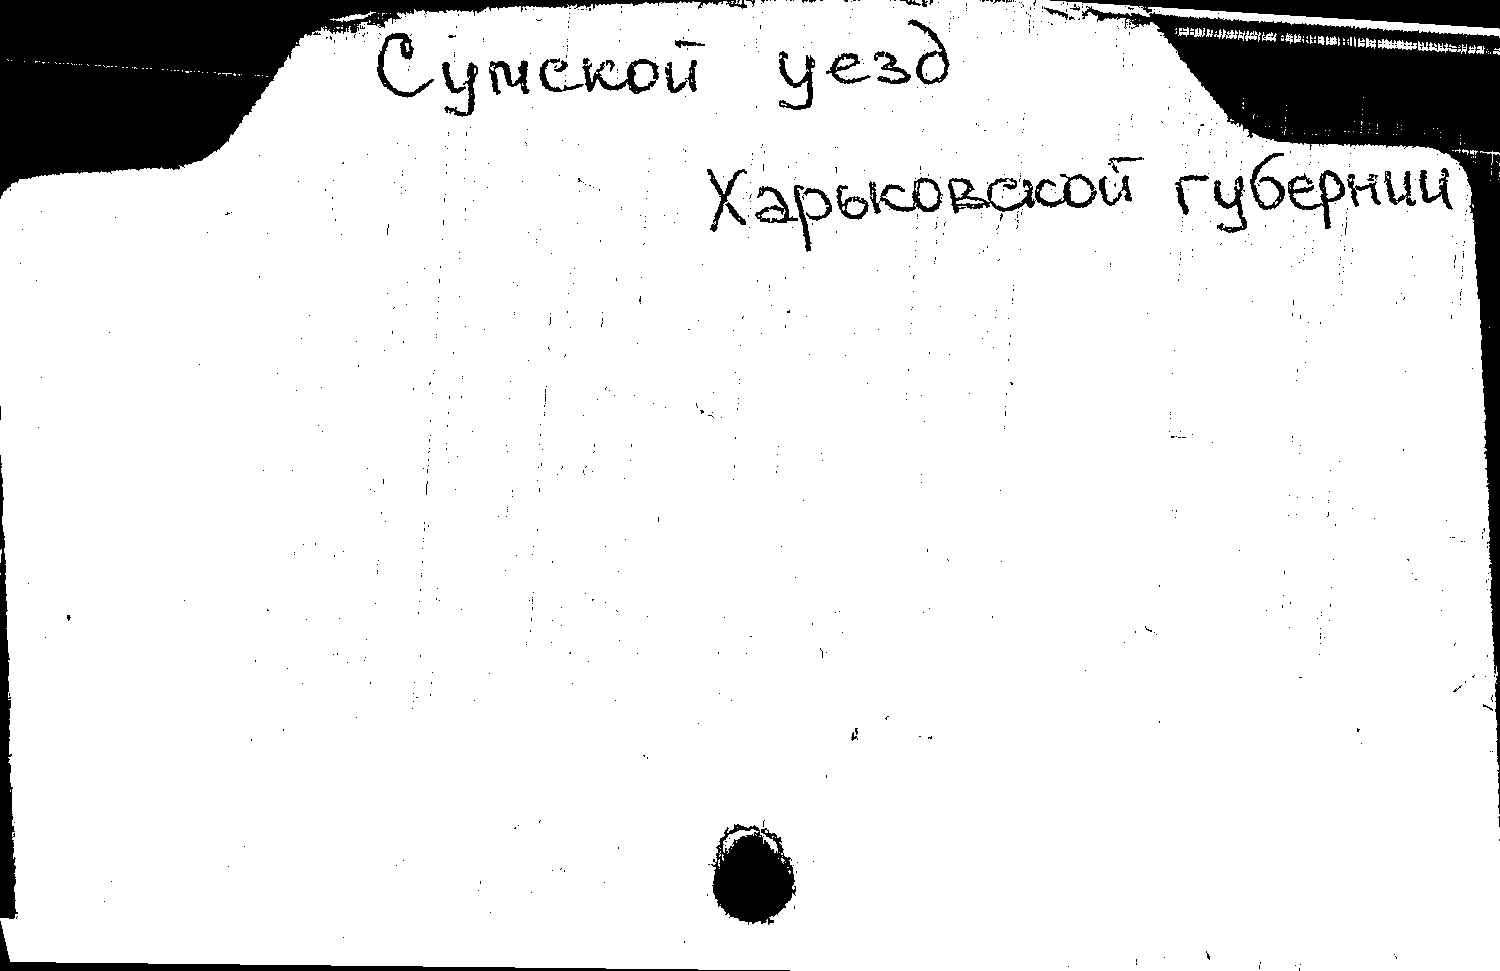 Сумской уезд
Харьковской губернии